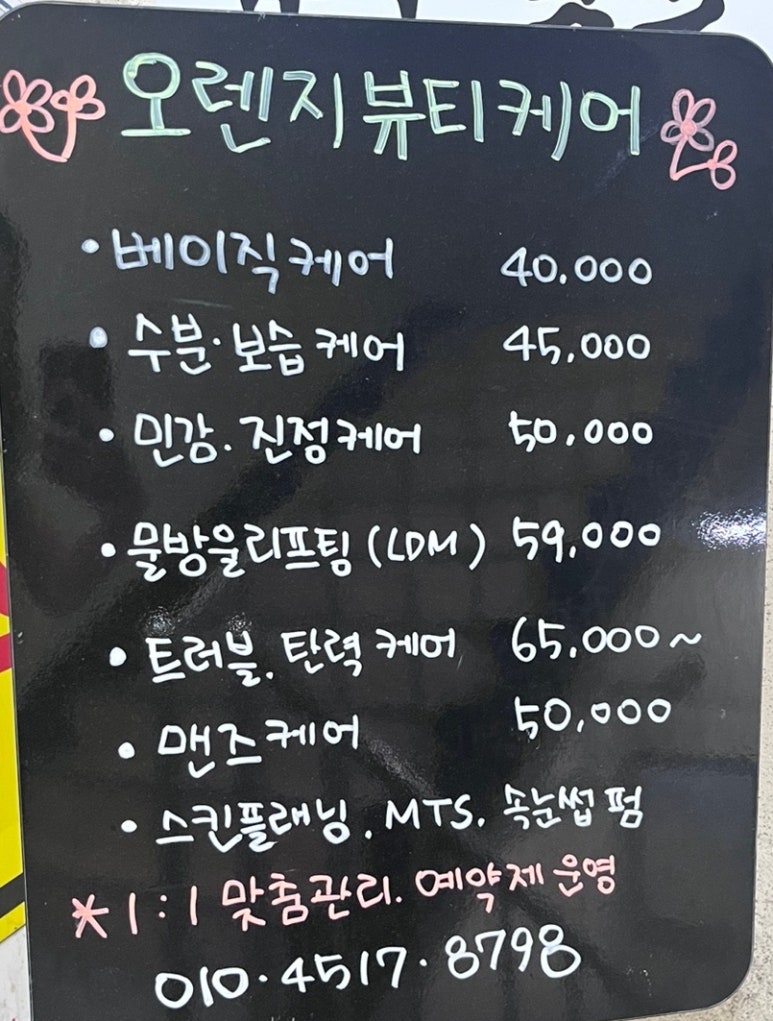 오렌지뷰티케어
• 베이직케어 40.000
• 수분·보습케어 45,000
• 민감.진정케어 50,000
• 물방울리프팅(LDM) 59,000
• 트러블.탄력케어 65,000~
• 맨즈케어 50,000
• 스킨플래닝.MTS.속눈썹펌
*1:1 맞춤관리.예약제운영
010·4517·8798